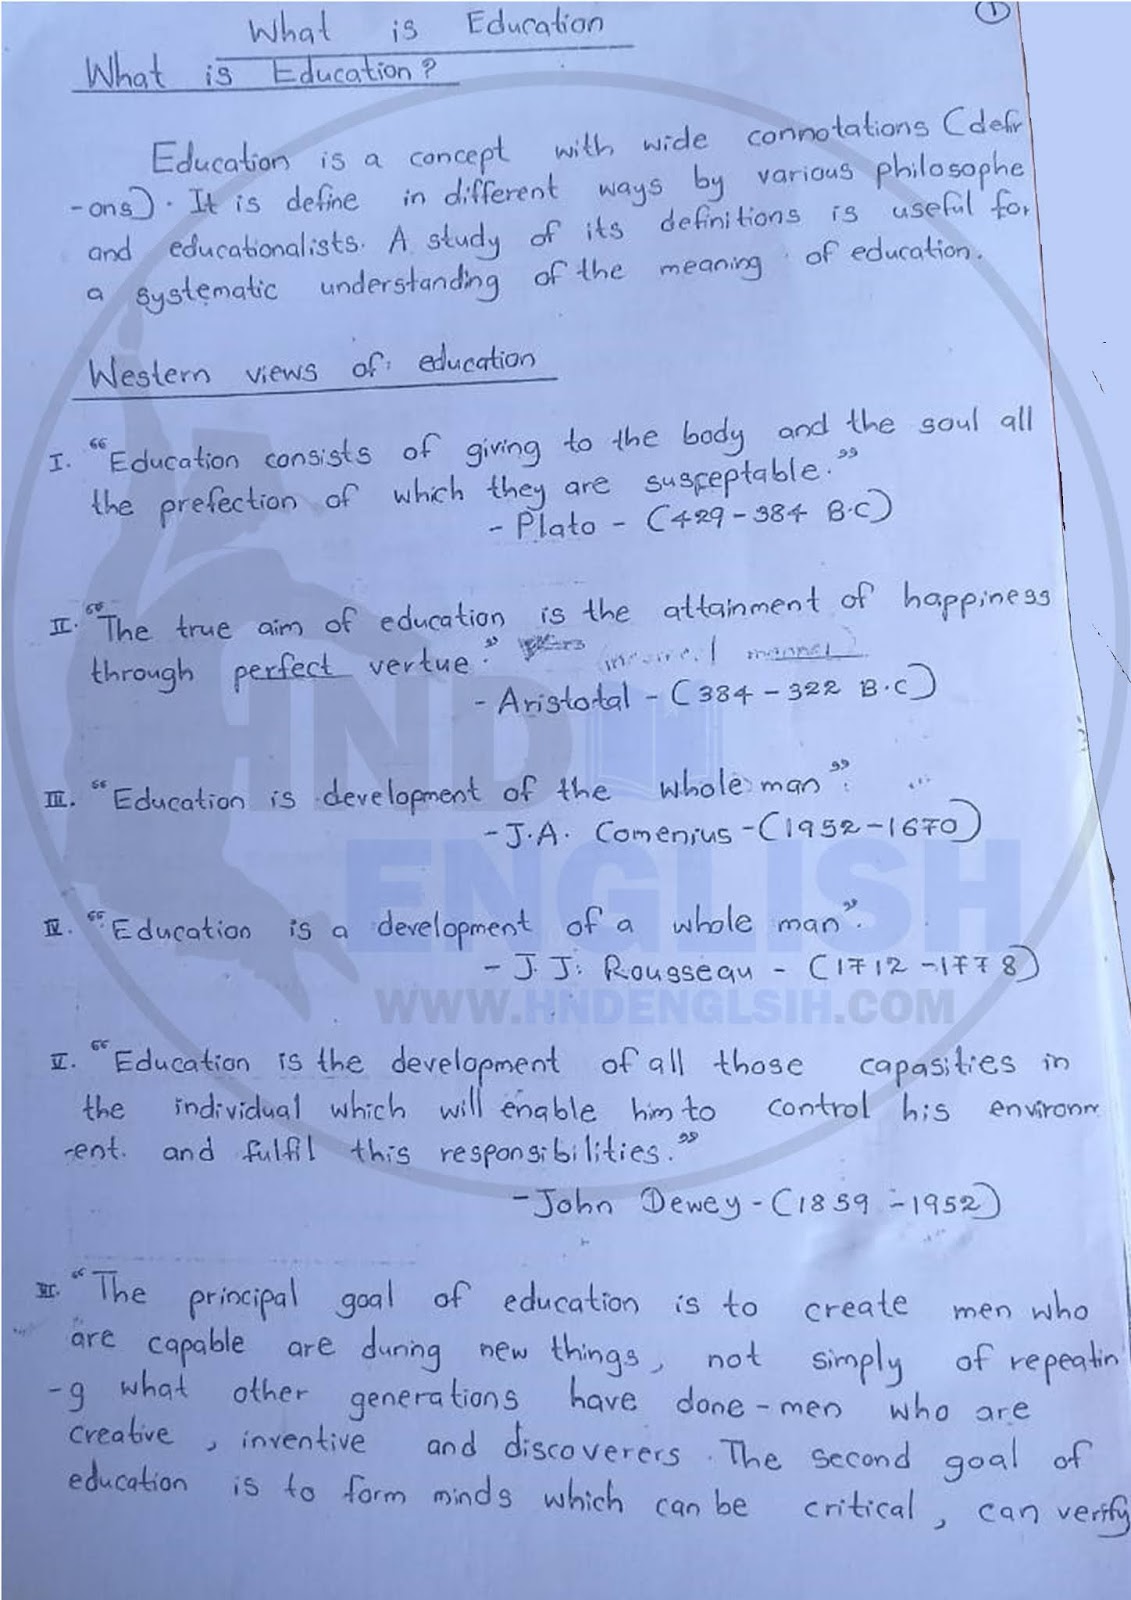 1
What is Education
What is Education?
Education is a concept with wide connotations (defir
-ons). It is define in different ways by various philosophe
and educationalists. A study of its definitions is useful for
a systematic understanding of the meaning of education.
Western views of education
I. "Education consists of giving to the body and the soul all
the prefection of which they are susceptable."
- Plato - (429-384 B.C)
II. "The true aim of education is the attainment of happiness
through perfect vertue."
- Aristotal - (384-322 B.C)
III. "Education is development of the whole man".
-J.A. Comenius -(1952-1670)
IV. "Education is a development of a whole man".
- J.J. Rousseau - (1712-1778)
V. "Education is the development of all those capasities in
the individual which will enable him to control his environm
-ent. and fulfil this responsibilities."
-John Dewey -(1859-1952)
VI. "The principal goal of education is to create men who
are capable are during new things, not simply of repeatin
-g what other generations have done-men who are
creative, inventive and discoverers. The second goal of
education is to form minds which can be critical, can verify
HND
ENGLISH
WWW.HNDENGLSIH.COM